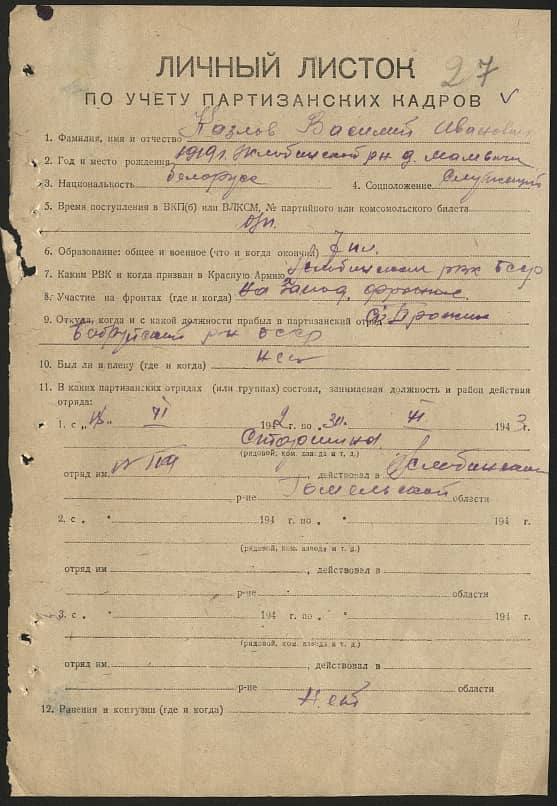 27
ЛИЧНЫЙ ЛИСТОК
ПО УЧЕТУ ПАРТИЗАНСКИХ КАДРОВ
1. Фамилия, имя и отчество Казлов Василий Иванович
2. Год и место рождения 1919 г. Жлобинский р-н д.
3. Национальность белорус 4. Соцположение Служащий
5. Время поступления в ВКП(б) или ВЛКСМ, № партийного или комсомольского билета
б/п.
6. Образование: общее и военное (что и когда окончил) 7 кл.
7. Каким РВК и когда призван в Красную Армию Жлобинским рвк БССР
8. Участие на фронтах (где и когда) На Запад. фронте.
9. Откуда, когда и с какой должности прибыл в партизанский отряд
Бобруйский р-н БССР
10. Был ли в плену (где и когда) нет
11. В каких партизанских отрядах (или группах) состоял, занимаемая должность и район действия
отряда:
1. с „ " VI 1942 г. по „30. XI 1943 г.
Старшина
(рядовой, ком. взвода и т. д.)
отряд им. , действовал в Жлобинском
р-не Гомельской области
2. с „ " 194 г. по „ " 194 г.
(рядовой, ком. взвода и т. д.)
отряд им , действовал в
р-не области
3. с „ " 194 г. по „ " 194 г.
(рядовой, ком. взвода и т. д.)
отряд им. , действовал в
р-не области
12. Ранения и контузии (где и когда) Нет